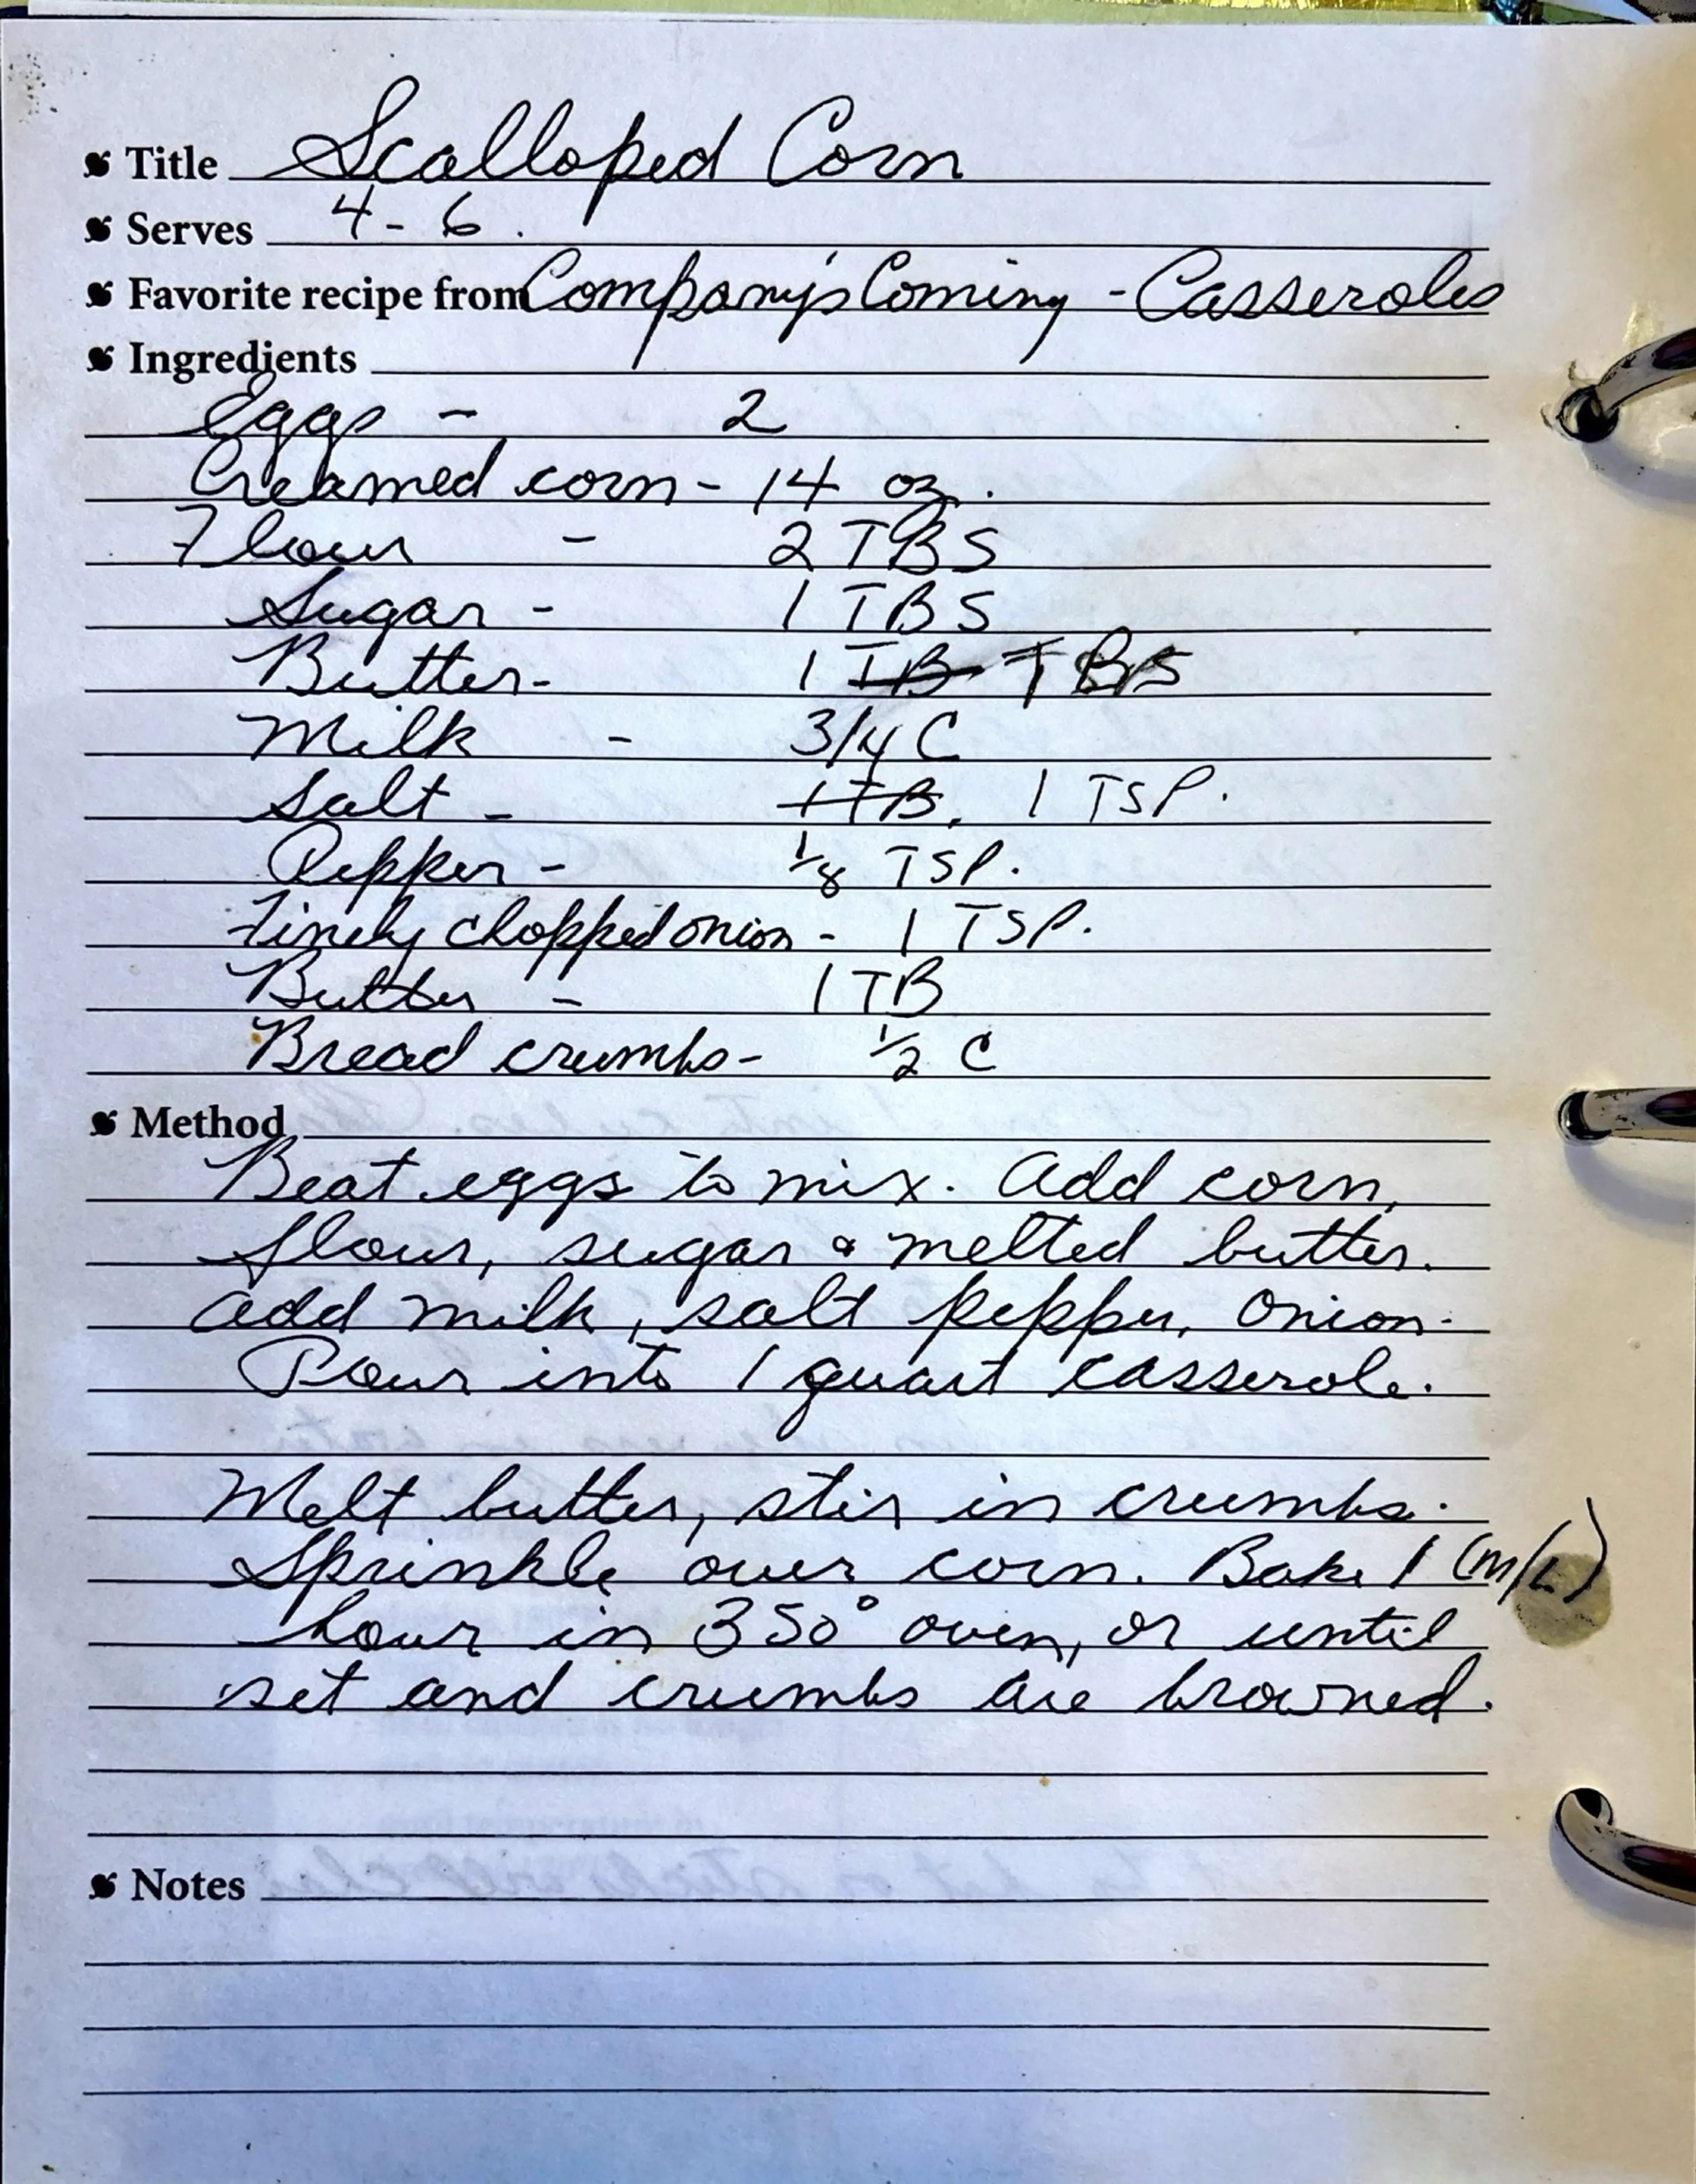 Title Scalloped Corn
Serves 4-6.
Favorite recipe from Company's Coming - Casseroles
Ingredients
Eggs - 2
Creamed corn - 14 oz.
Flour - 2 TBS
Sugar - 1 TBS
Butter - 1 TB TBS
Milk - 3/4 C
Salt - 1 TB. 1 TSP.
Pepper - 1/8 TSP.
Finely chopped onion - 1 TSP.
Butter - 1 TB
Bread crumbs - 1/2 C
Method
Beat eggs to mix. Add corn,
flour, sugar & melted butter.
Add milk, salt pepper, onion.
Pour into 1 quart casserole.
Melt butter, stir in crumbs.
Sprinkle over corn. Bake 1 (M/L)
hour in 350° oven, or until
set and crumbs are browned.
Notes